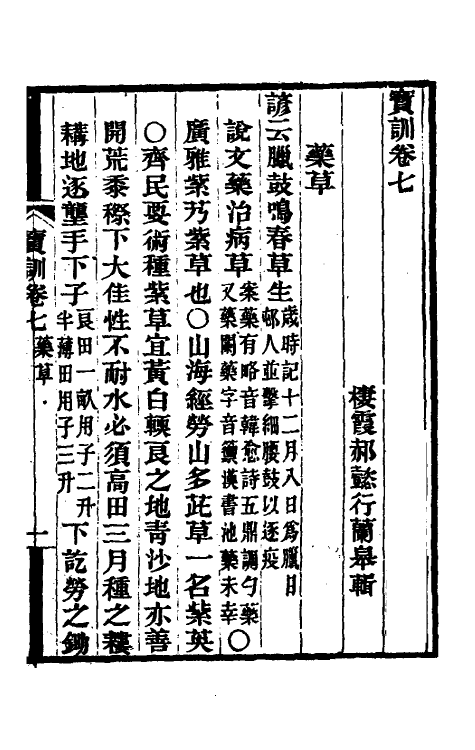 寶訓卷七
棲霞郝懿行蘭皋輯
藥草
諺云臘鼓鳴春草生歲時記十二月八日爲臘日邨人並擊細腰鼓以逐疫
說文藥治病草案藥有略音韓愈詩五鼎調勺藥又藥闌藥字音籞漢書池藥未幸〇
廣雅紫䓞紫草也〇山海經勞山多茈草一名紫英
〇齊民要術種紫草宜黃白輭良之地靑沙地亦善
開荒黍穄下大佳性不耐水必須高田三月種之耬
耩地逐壟手下子良田一畝用子二升半薄田用子三升下訖勞之鋤
寶訓卷七 藥草 一